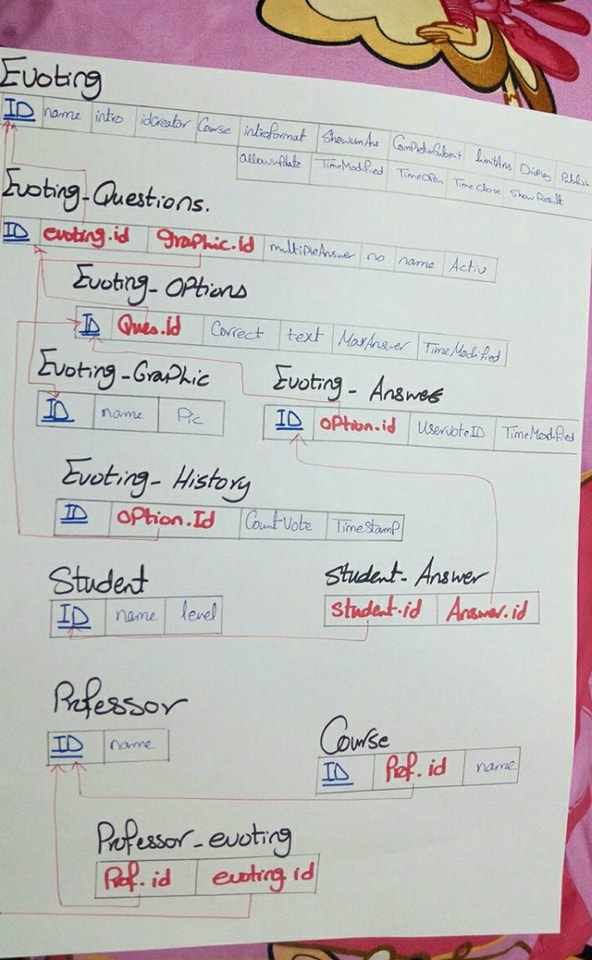 Evoting
ID name intro idCreator Course introformat ShowunAns Display Publish
allowupdate TimeModified TimeOpen Timeclose ShowResult
Evoting_Questions.
ID evoting.id graphic.id multipleAnswer no name Activ
Evoting_Options
ID Ques.id Correct text MaxAnswer TimeModified
Evoting_Graphic
ID name Pic
Evoting_Answes
ID option.id UservoteID TimeModified
Evoting_History
ID option.Id CountVote TimeStamp
Student
ID name level
Student_Answer
Student.id Answer.id
Professor
ID name
Course
ID Prof.id name
Professor_evoting
Prof.id evoting id